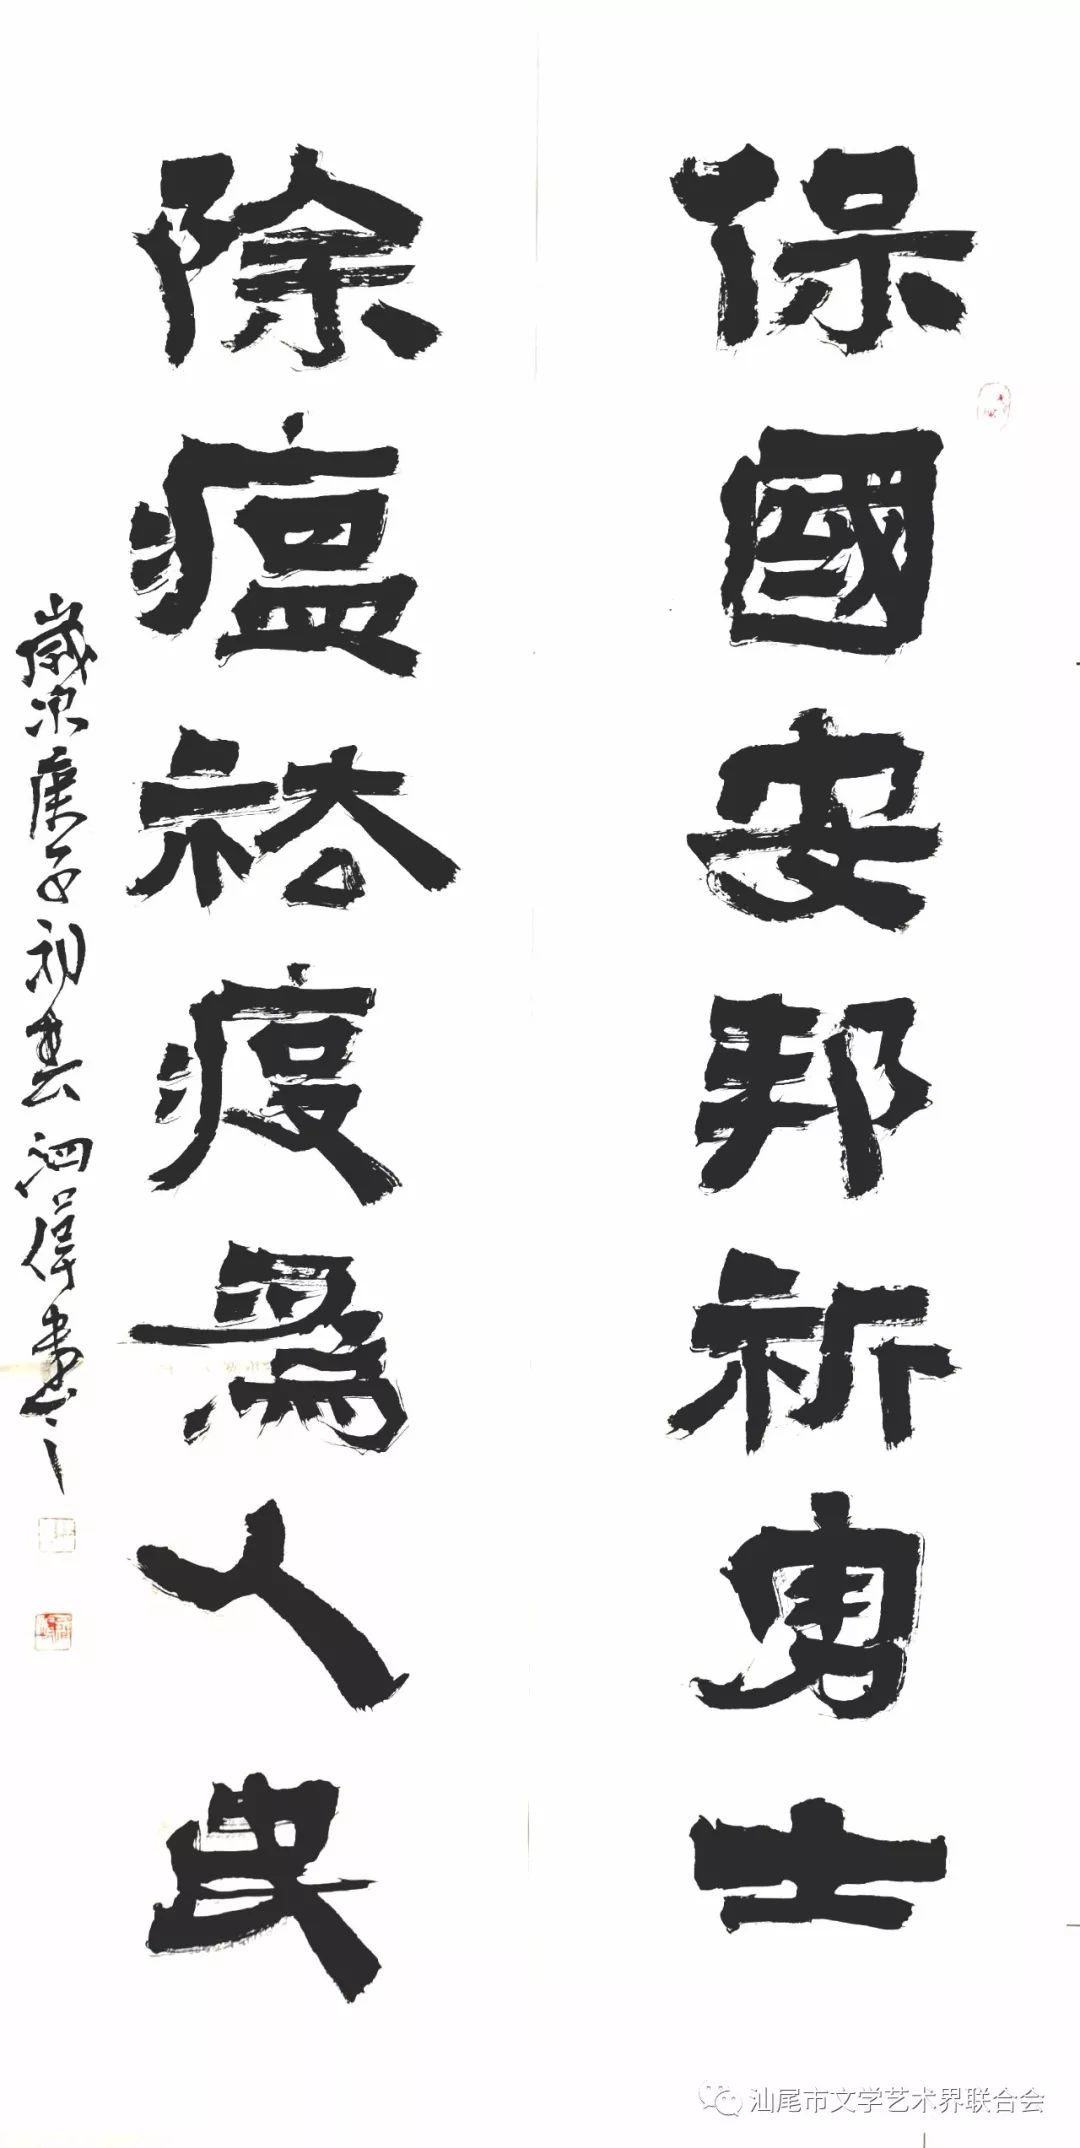 保國安邦祈勇士
除瘟祛疫爲人民
歲次庚子初春泗偉書
汕尾市文学艺术界联合会